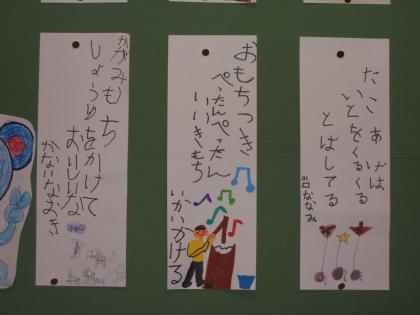 たこあげは
いとをくるくる
とばしてる
ななみ
おもちつき
ぺったんぺったん
いいきもち
いかいかける
かがみもち
しょうゆをかけて
おいしいな
かないなおき